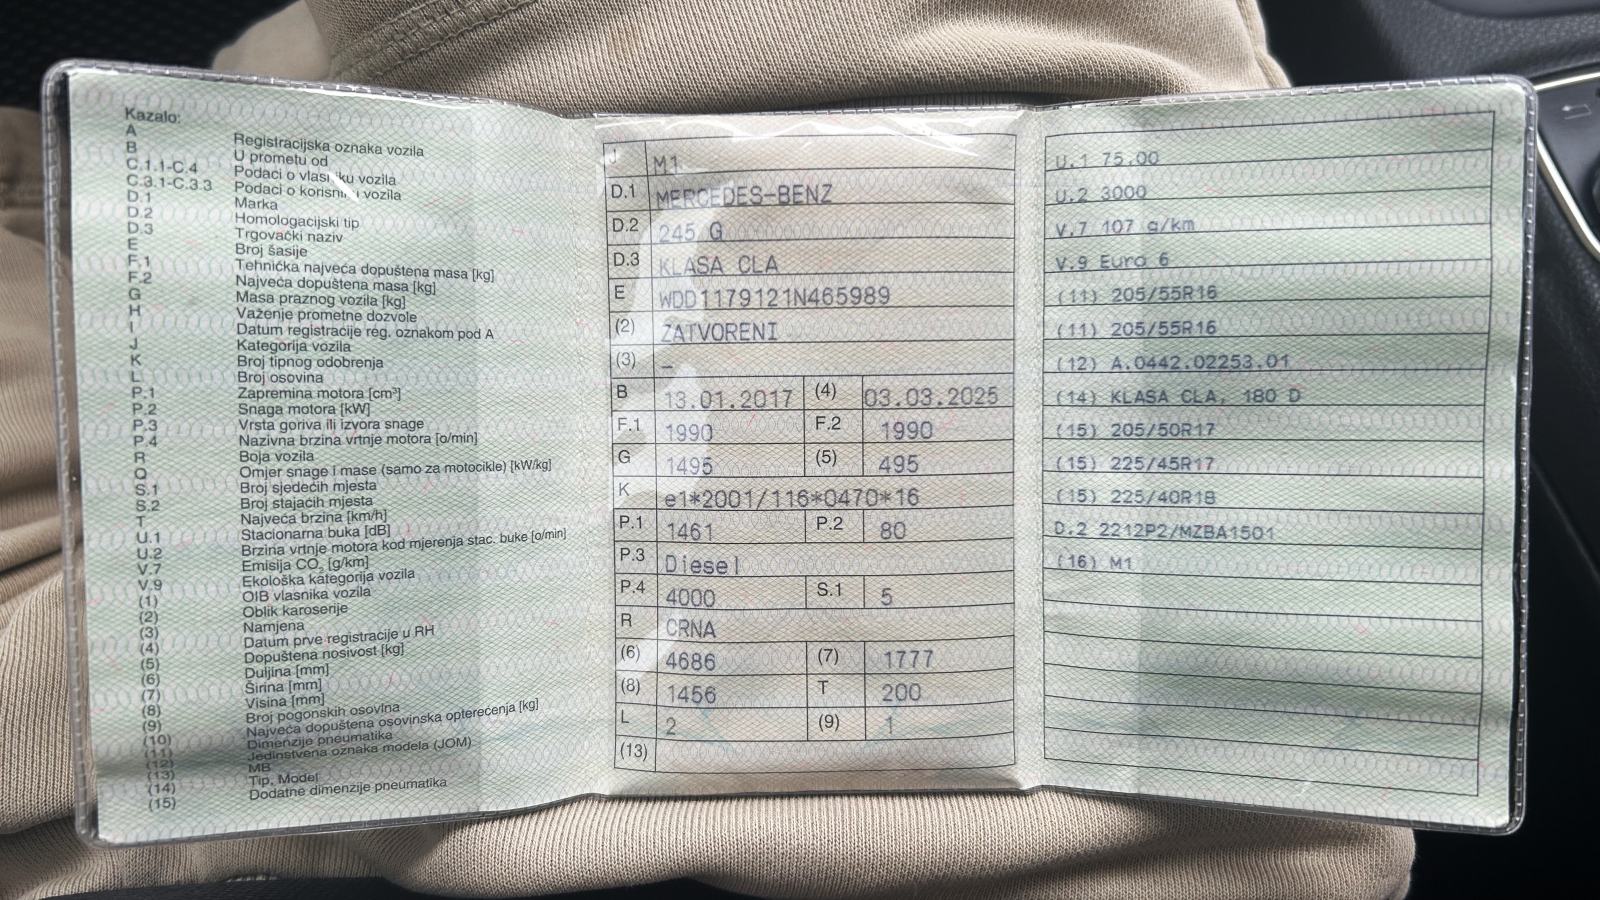 Kazalo:
A Registracijska oznaka vozila
B U prometu od
C.1.1-C.4 Podaci o vlasniku vozila
C.3.1-C.3.3 Podaci o korisniku vozila
D.1 Marka
D.2 Homologacijski tip
D.3 Trgovački naziv
E Broj šasije
F.1 Tehnička najveća dopuštena masa [kg]
F.2 Najveća dopuštena masa [kg]
G Masa praznog vozila [kg]
H Važenje prometne dozvole
I Datum registracije reg. oznakom pod A
J Kategorija vozila
K Broj tipnog odobrenja
L Broj osovina
P.1 Zapremina motora [cm³]
P.2 Snaga motora [kW]
P.3 Vrsta goriva ili izvora snage
P.4 Nazivna brzina vrtnje motora [o/min]
R Boja vozila
Q Omjer snage i mase (samo za motocikle) [kW/kg]
S.1 Broj sjedećih mjesta
S.2 Broj stajaćih mjesta
T Najveća brzina [km/h]
U.1 Stacionarna buka [dB]
U.2 Brzina vrtnje motora kod mjerenja stac. buke [o/min]
V.7 Emisija CO₂ [g/km]
V.9 Ekološka kategorija vozila
(1) OIB vlasnika vozila
(2) Oblik karoserije
(3) Namjena
(4) Datum prve registracije u RH
(5) Dopuštena nosivost [kg]
(6) Duljina [mm]
(7) Širina [mm]
(8) Visina [mm]
(9) Broj pogonskih osovina
(10) Najveća dopuštena osovinska opterećenja [kg]
(11) Dimenzije pneumatika
(12) Jedinstvena oznaka modela (JOM)
(13) MB
(14) Tip, Model
(15) Dodatne dimenzije pneumatika
J M1
D.1 MERCEDES-BENZ
D.2 245 G
D.3 KLASA CLA
E WDD1179121N465989
(2) ZATVORENI
(3) –
B 13.01.2017 (4) 03.03.2025
F.1 1990 F.2 1990
G 1495 (5) 495
K e1*2001/116*0470*16
P.1 1461 P.2 80
P.3 Diesel
P.4 4000 S.1 5
R CRNA
(6) 4686 (7) 1777
(8) 1456 T 200
L 2 (9) 1
(13)
U.1 75.00
U.2 3000
V.7 107 g/km
V.9 Euro 6
(11) 205/55R16
(11) 205/55R16
(12) A.0442.02253.01
(14) KLASA CLA, 180 D
(15) 205/50R17
(15) 225/45R17
(15) 225/40R18
D.2 2212P2/MZBA1501
(16) M1